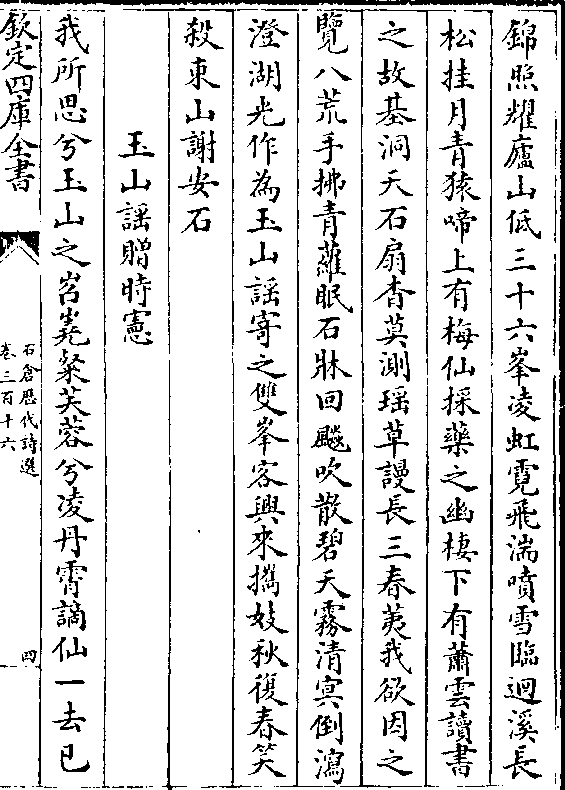 錦照耀廬山低三十六峯凌虹霓飛湍噴雪臨迴溪長
松挂月青猿啼上有梅仙採藥之幽棲下有蕭雲讀書
之故基洞天石扇杳莫測瑶草謾長三春荑我欲因之
覽八荒手拂青蘿眠石牀回飈吹散碧天霧清㝠倒瀉
澄湖光作為玉山謡寄之雙峯客興來攜妓秋復春笑
殺東山謝安石
玉山謡贈時憲
我所思兮玉山之岧嶤粲芙蓉兮凌丹霄謫仙一去已
欽定四庫全書
石倉歴代詩選
卷三百十六
四